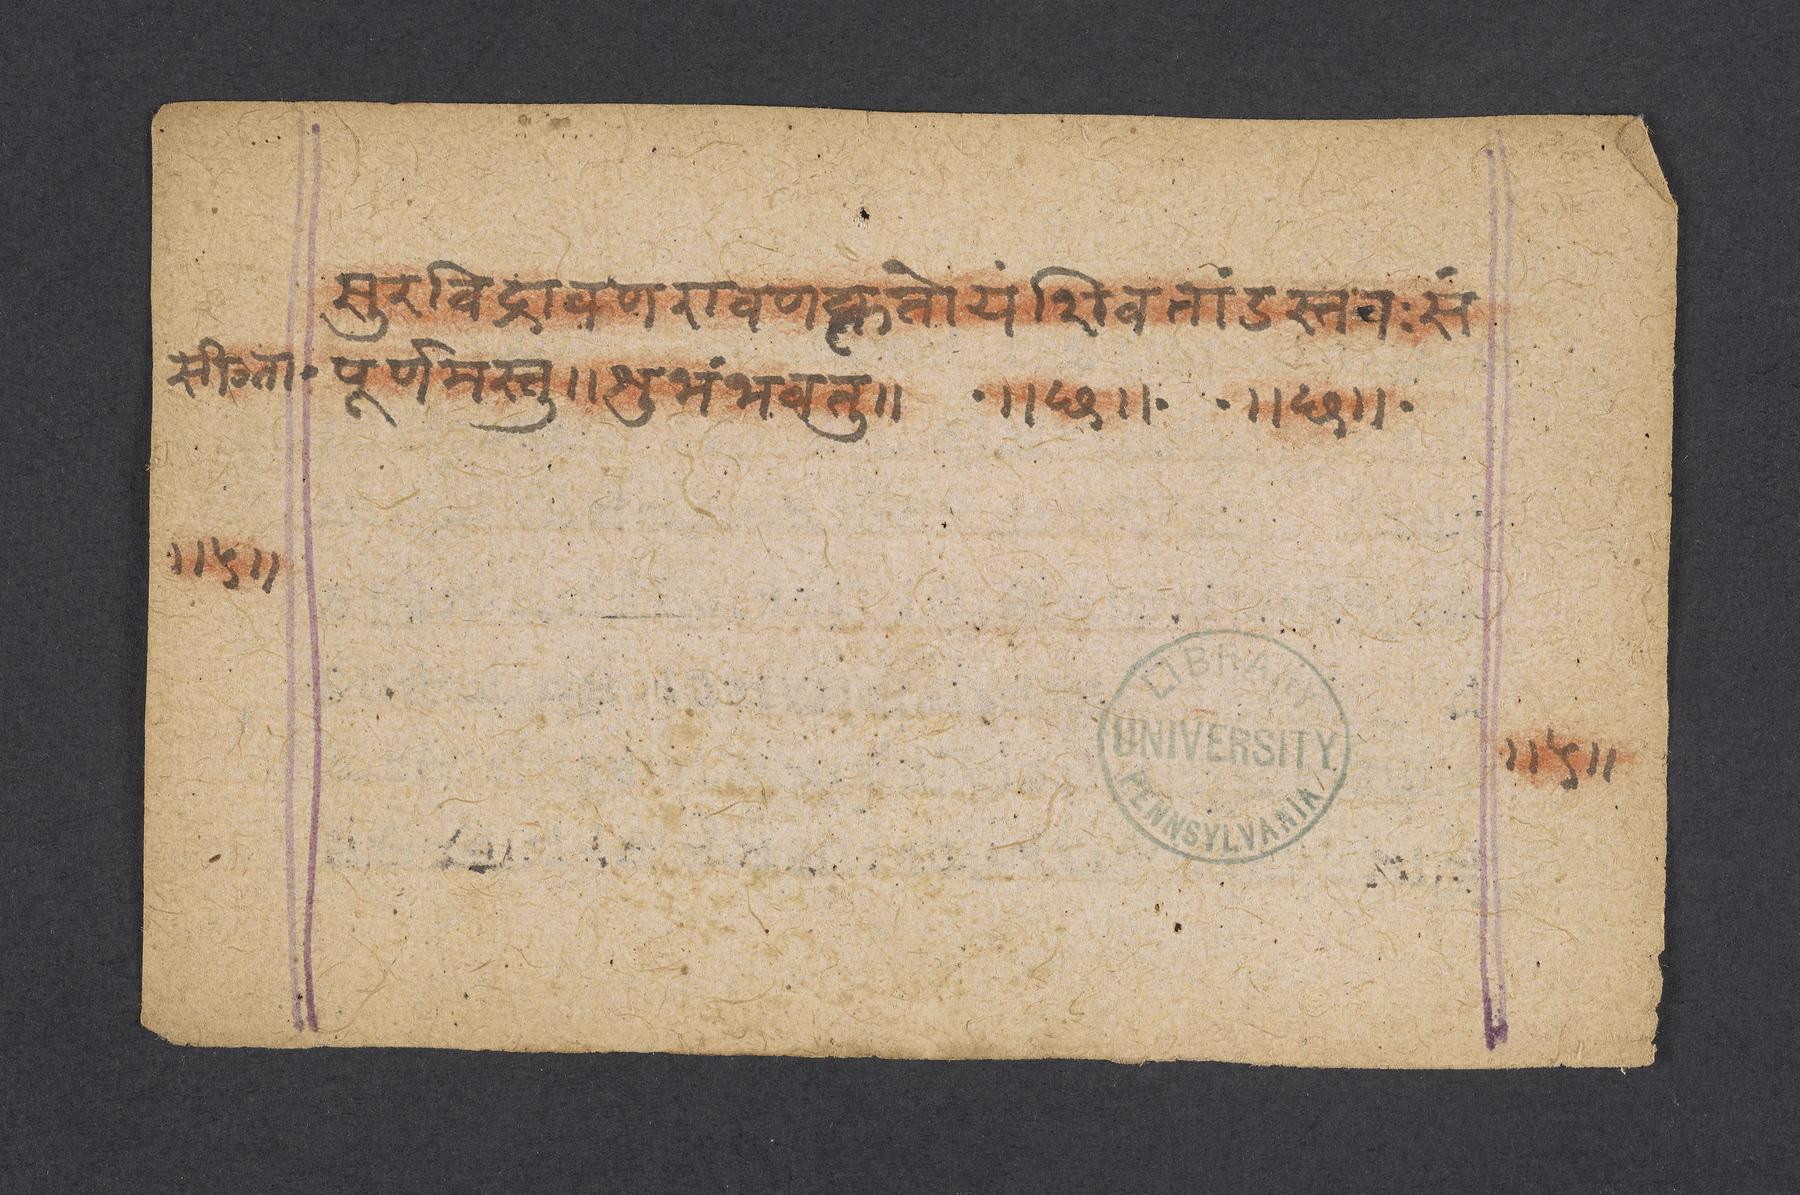 सुरविद्रावणरावणकृतोयंशिवतांडस्तवःसं
सी॰ता॰ पूर्णमस्तु॥शुभंभवतु॥ ॰॥छ॥॰ ॰॥छ॥॰
॥५॥
LIBRARY
UNIVERSITY
PENNSYLVANIA
॥५॥